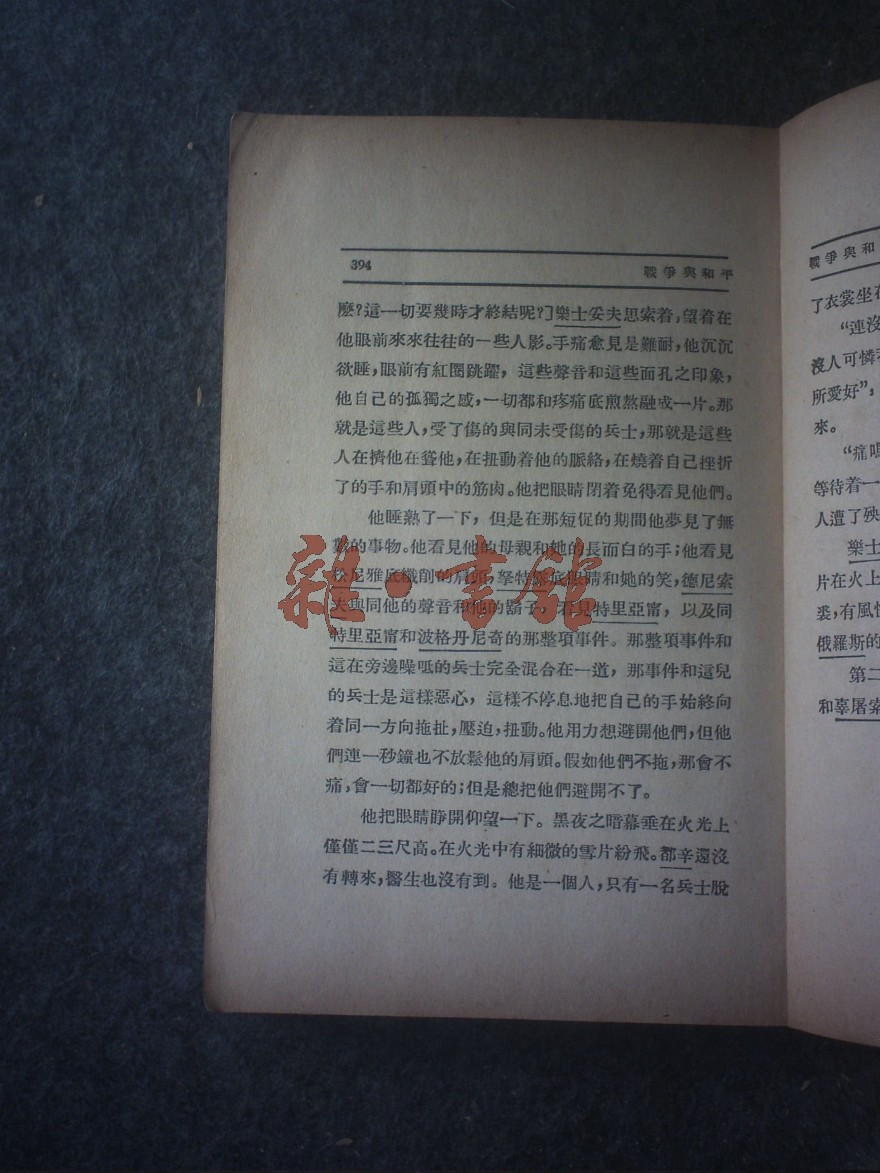 394 戰爭與和平
麼?這一切要幾時才終結呢?]樂士妥夫思索着,望着在
他眼前來來往往的一些人影。手痛愈見是難耐,他沉沉
欲睡,眼前有紅圈跳躍,這些聲音和這些面孔之印象,
他自己的孤獨之感,一切都和疼痛底煎熬融成一片。那
就是這些人,受了傷的與同未受傷的兵士,那就是這些
人在擠他在聳他,在扭動着他的脈絡,在燒着自己挫折
了的手和肩頭中的筋肉。他把眼睛閉着免得看見他們。
他睡熟了一下,但是在那短促的期間他夢見了無
數的事物。他看見他的母親和她的長而白的手;他看見
松尼雅底纖削的肩頭,拏特霞底眼睛和她的笑,德尼索
夫與同他的聲音和他的鬍子,看見特里亞甯,以及同
特里亞甯和波格丹尼奇的那整項事件。那整項事件和
這在旁邊噪呧的兵士完全混合在一道,那事件和這兒
的兵士是這樣惡心,這樣不停息地把自己的手始終向
着同一方向拖扯,壓迫,扭動。他用力想避開他們,但他
們連一秒鐘也不放鬆他的肩頭。假如他們不拖,那會不
痛,會一切都好的;但是總把他們避開不了。
他把眼睛睜開仰望一下。黑夜之暗幕垂在火光上
僅僅二三尺高。在火光中有細微的雪片紛飛。都辛還沒
有轉來,醫生也沒有到。他是一個人,只有一名兵士脫
雜·書館
戰爭與和
了衣裳坐在
“連沒
沒人可憐
所愛好”,
來。
“痛嗎
等待着一
人遭了殃
樂士
片在火上
裘,有風
俄羅斯的
第二
和辜屠索